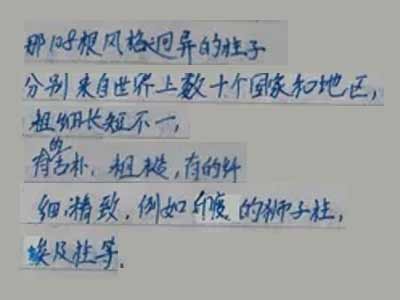 那108根风格迥异的柱子
分别来自世界上数十个国家和地区,
粗细长短不一,
有的古朴、粗糙,有的纤
细精致,例如印度的狮子柱,
埃及柱等.